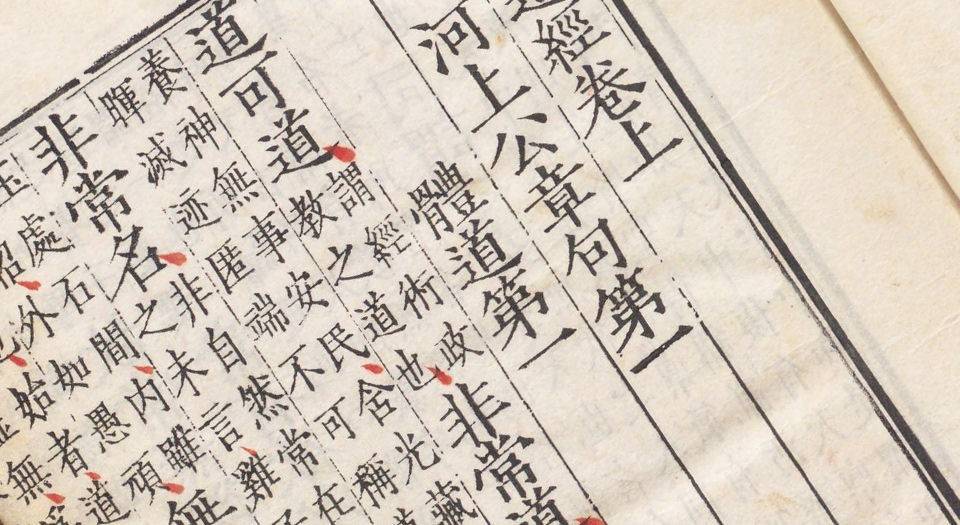 經卷上
河上公章句第一
體道第一
道可道謂經術政教之道也非常道
養神無事安民含光藏
暉滅迹匿端不可稱道
非常名非自然常在
之未言雞子
處石間内雖
昭外如愚頑無
始者道
無